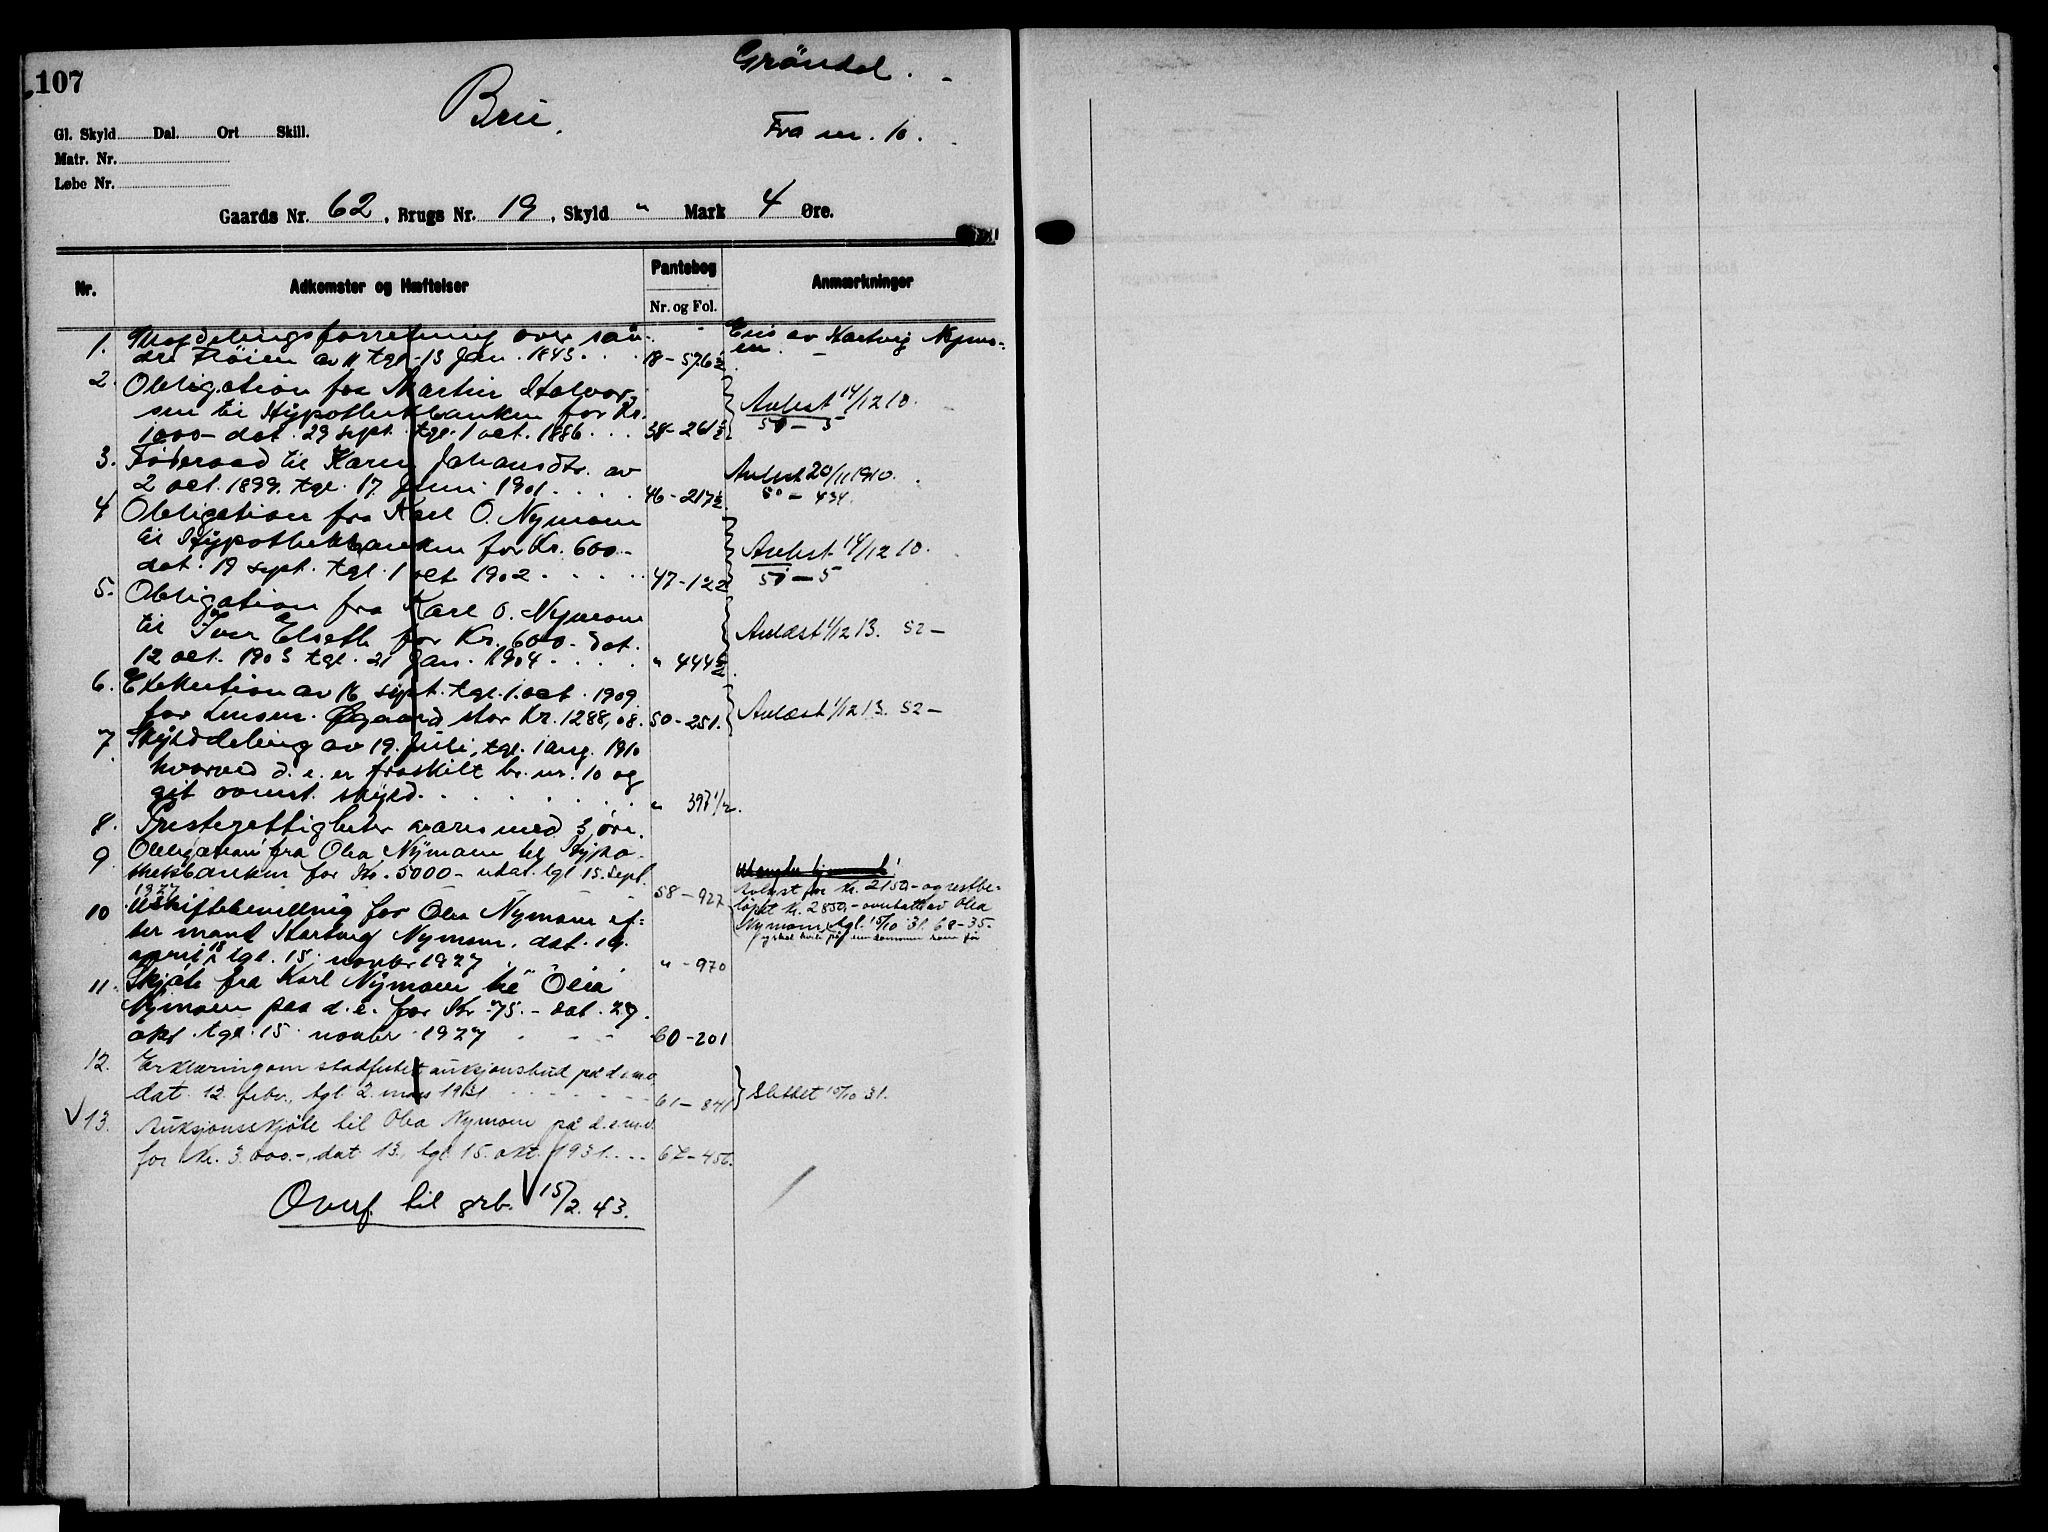 107
Gröndal.
Bru.
Fra nr. 10.
Gl. Skyld Dal. Ort Skill.
Matr. Nr.
Løbe Nr.
Gaards Nr. 62, Brugs Nr. 19, Skyld " Mark 4 Øre.
Nr. Adkomster og Hæftelser Pantebog Nr. og Fol. Anmærkninger
1. Utskiftningsforretning over søn-
dre Trøien av 11 tgl. 13 Jan. 1843. 18-576½
Eies av Hartvig Nymo-
en.
2. Obligation fra Martin Halvor-
sen til Hypothekbanken for Kr.
1000- dat. 29 sept. tgl. 1 oct. 1886. 38-261½
Avlest 14/12 10.
51-5
3. Föderaad til Karen Johansdtr. av
2 oct. 1899. tgl. 17 Juni 1901. 46-217½
Avlest 20/11 1910.
50-434.
4 Obligation fra Karl O. Nymoen
til Hypothekbanken for Kr. 600-
dat. 19 sept. tgl. 1 oct 1902. 47-122
Avlest 14/12 10.
51-5
5. Obligation fra Karl O. Nymoen
til Iver Elseth for Kr. 600- dat.
12 oct. 1903 tgl. 21 Jan. 1904. " 444½
Avlæst 1/12 13. 52-
6. Exekution av 16 sept. tgl. 1. oct. 1909
for Lensm. Øgaard stor Kr. 1288,08. 50-251.
Avlæst 1/12 13. 52-
7. Skylddeling av 19. Juli, tgl. 1 aug. 1910
hvorved d. e. er fraskilt br. nr. 10 og
git ovenst. skyld. " 397 1/2.
8. Presterettigheter svares med 3 øre.
9 Obligation fra Olea Nymoen til Hypo-
thekbanken for Kr. 5000- udat. tgl 15. Sept.
1927 58-927
Avlyst for Kr. 2150,- og restbe-
løpet Kr. 2850,- overtatt av Olea
Nymoen, tgl. 15/10 31. 68-35-
10 Uskiftebevilling for Olea Nymoen ef-
ter mand Hartvig Nymoen. dat. 19.
april 18 tgl. 15. novbr 1927 " -970
11. Skjøte fra Karl Nymoen til Olea
Nymoen paa d. e. for Kr 75.- dat. 27.
okt. tgl. 15 novbr 1927 60-201
12. Erklæring om stadfestet auksjonsbud på d. e. m. v.
dat. 12. febr., tgl 2. mars 1931 61-841
Slettet 15/10 31.
V 13. Auksjonsskjøte til Olea Nymoen på d. e. m. v.
for Kr. 3.000.-, dat 13., tgl. 15. okt. 1931. 67-456.
Overf. til grb. V 15/2. 43.